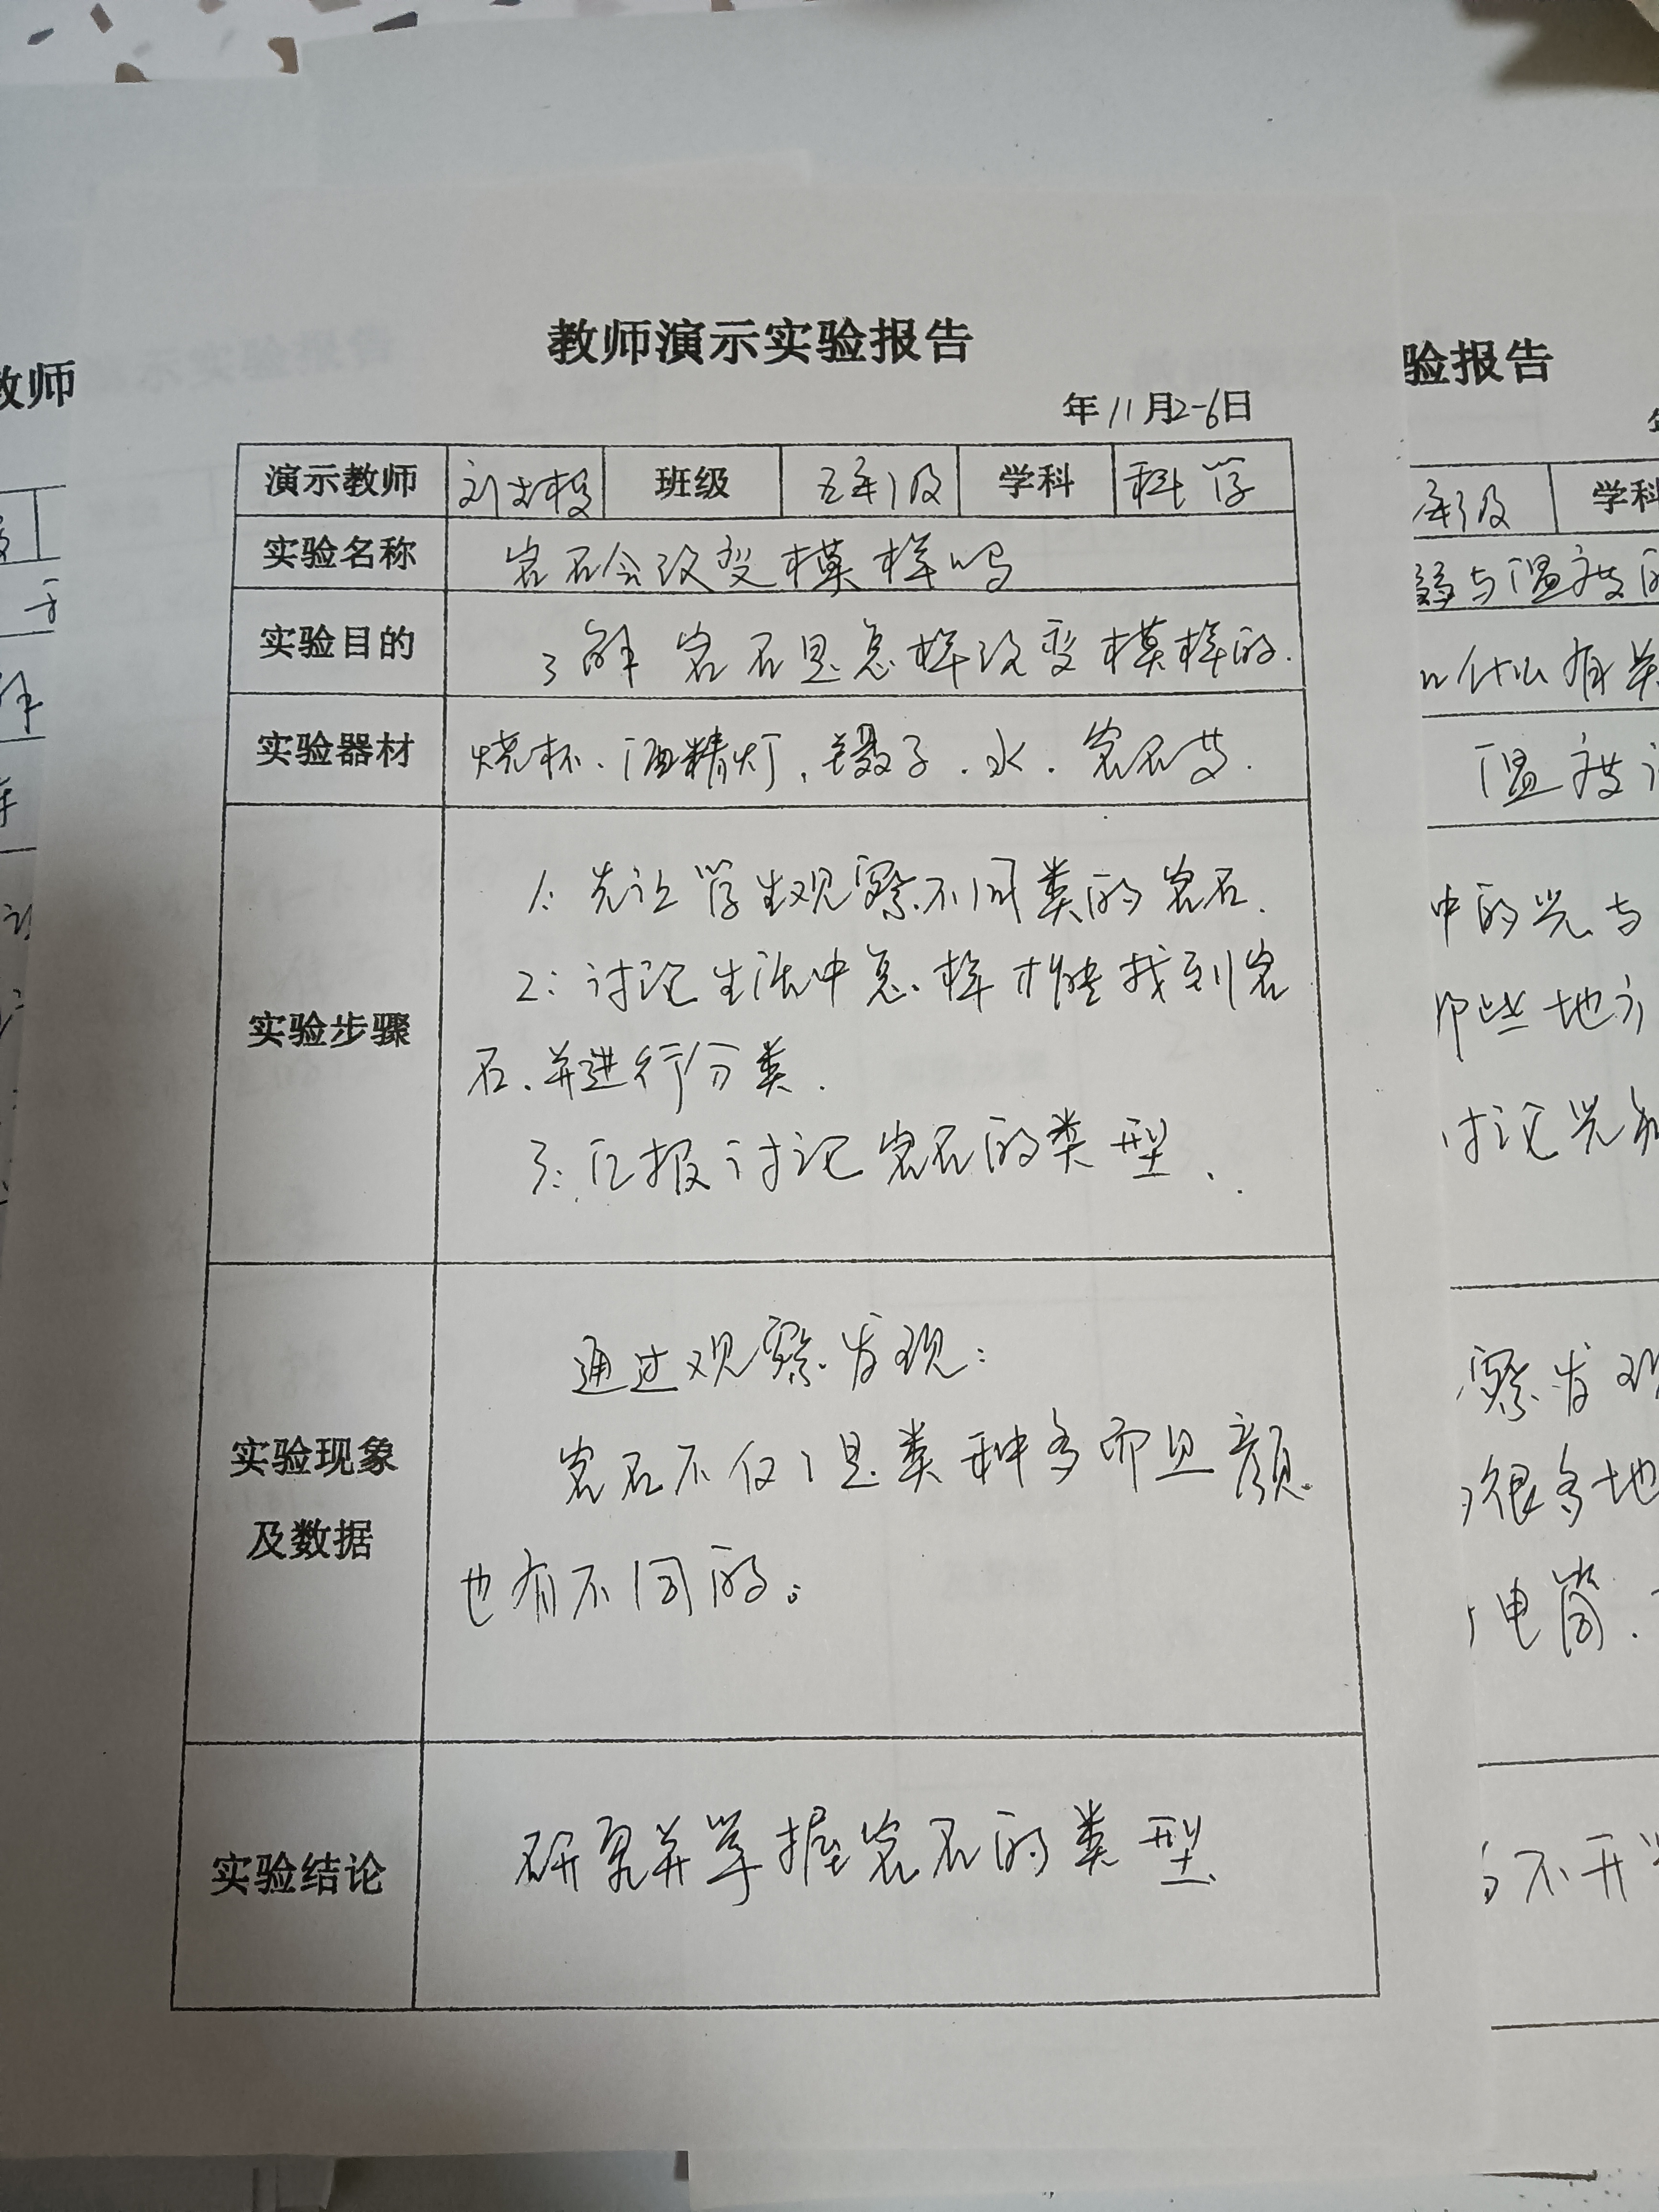 教师演示实验报告
年11月2-6日
演示教师 班级 五年级 学科 科学
实验名称 岩石会改变模样吗
实验目的 了解岩石是怎样改变模样的.
实验器材 烧杯、酒精灯、镊子、水、岩石等.
实验步骤
1: 先让学生观察不同类的岩石.
2: 讨论生活中怎样才能找到岩
石、并进行分类.
3: 汇报讨论岩石的类型.
实验现象
及数据
通过观察发现:
岩石不仅是类种多而且颜
也有不同的。
实验结论 研究并掌握岩石的类型.
教师
验报告
年级 学科
与温度的
什么有关
温度
中的光与
那些地方
讨论光
察发现
很多地
电筒.
不开